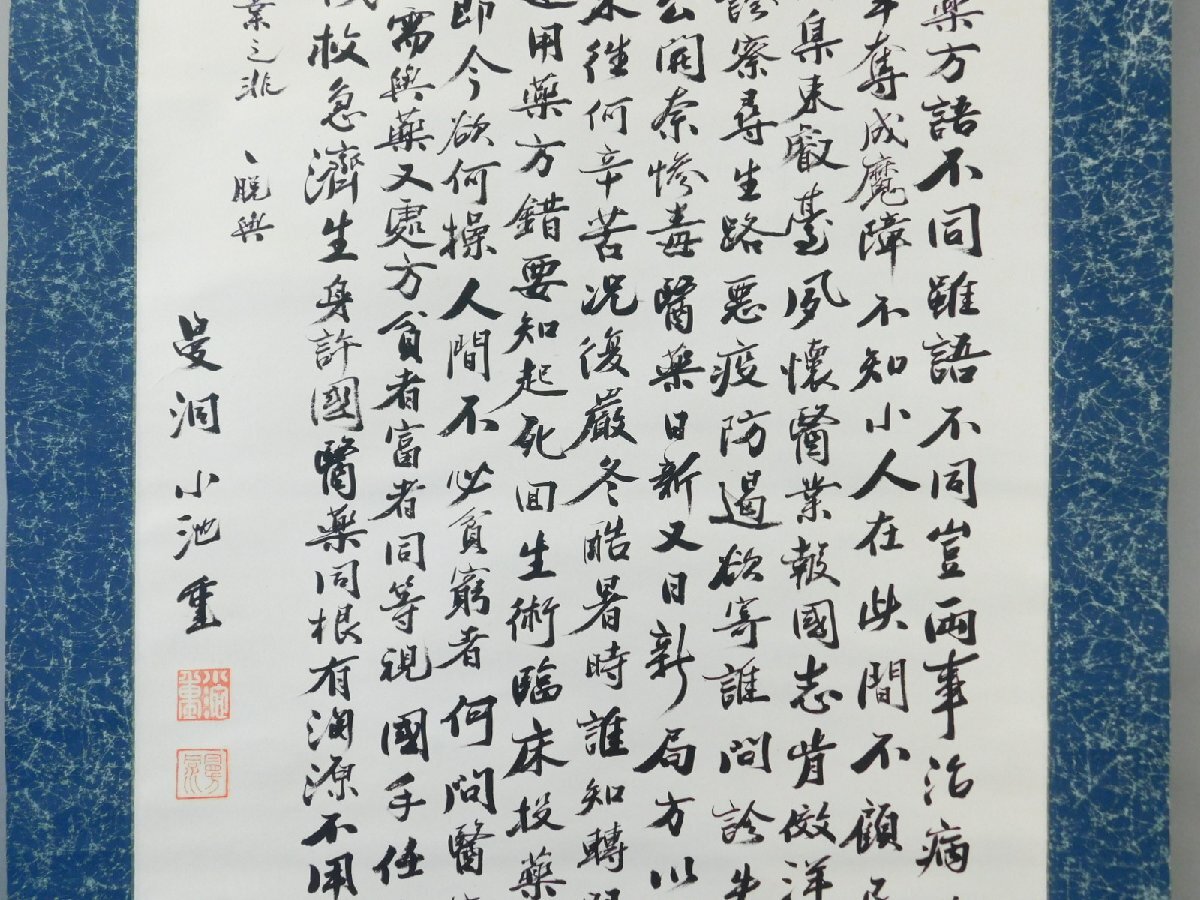 藥方語不同雖語不同豈兩事治病
奪成魔障不知小人在此間不顧
集東叡臺夙懷醫業報國志肯倣洋
診察尋生路惡疫防遏欲寄誰問診
公開奈慘毒醫藥日新又日新局方以
來往何辛苦況復嚴冬酷暑時誰知轉
用藥方錯要知起死回生術臨床投藥
即今欲何操人間不必貧窮者何問醫
需與藥又處方貧者富者同等視國手任
救急濟生身許國醫藥同根有淵源不用
業之非 脫與
曼洞 小池重